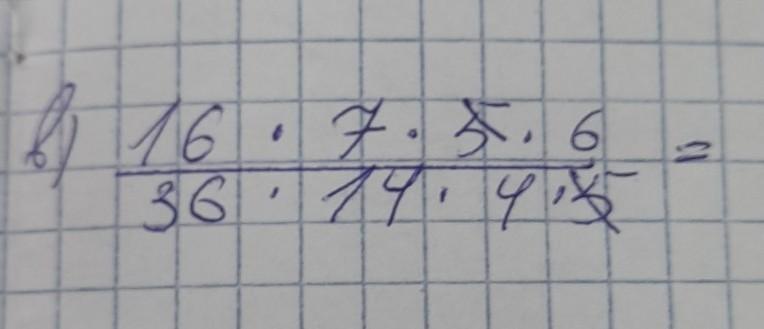 в) 16 · 7 · 5 · 6 =
36 · 14 · 4 · 5